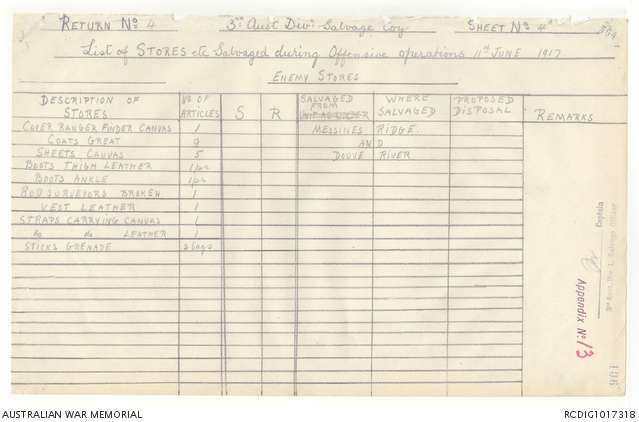 RETURN No 4 3rd Aust Divn Salvage Coy SHEET No 4a
List of STORES etc Salvaged during Offensive operations 11th JUNE 1917
ENEMY STORES
DESCRIPTION OF STORES No OF ARTICLES S R SALVAGED FROM WHERE SALVAGED PROPOSED DISPOSAL REMARKS
COVER RANGER FINDER CANVAS 1 MESSINES RIDGE
COATS GREAT 9 AND
SHEETS CANVAS 5 DOUVE RIVER
BOOTS THIGH LEATHER 1 pr
BOOTS ANKLE 1 pr
ROD SURVEYORS BROKEN 1
VEST LEATHER 1
STRAPS CARRYING CANVAS 1
do do LEATHER 1
STICKS GRENADE 2 bags
Captain
Appendix No 13
AUSTRALIAN WAR MEMORIAL
RCDIG1017318